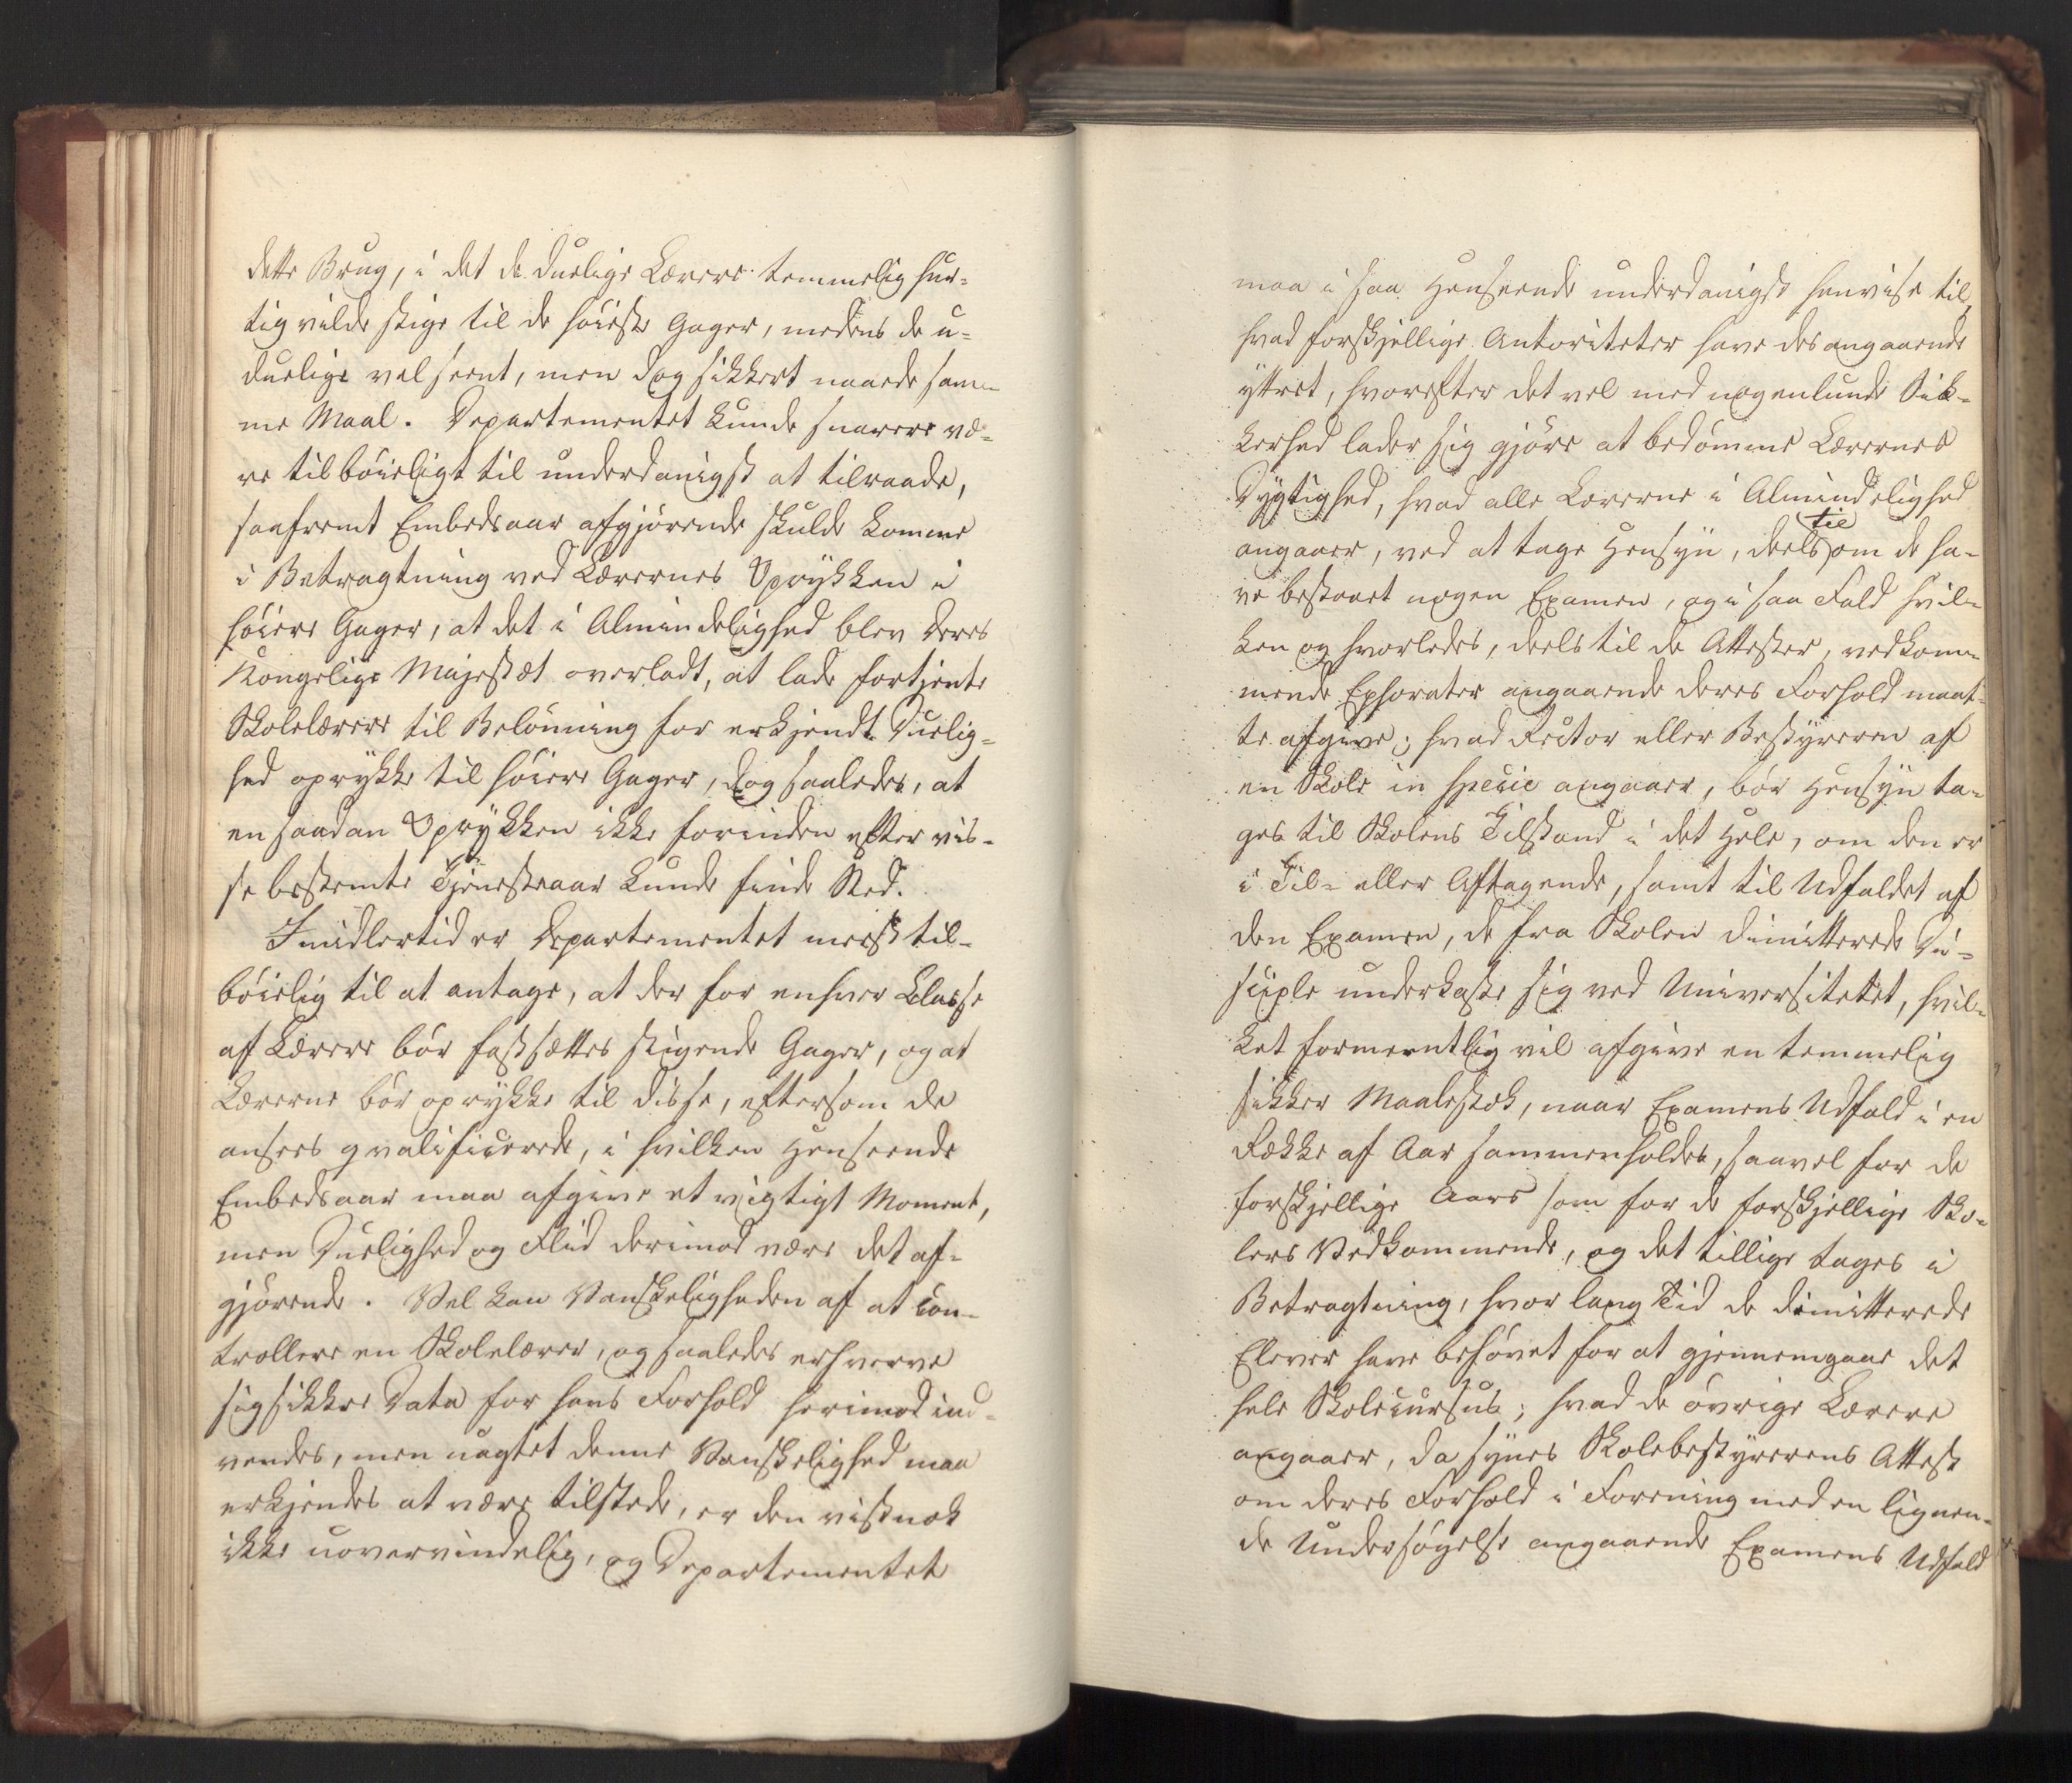 dette Brug, i det de duelige Lærere temmelig hur-
tig vilde stige til de høieste Gager, medens de u-
duelige vel seent, men dog sikkert naaede sam-
me Maal. Departementet kunde snarere væ-
re tilbøieligt til underdanigst at tilraade,
saafremt Embedsaar afgjørende skulde komme
i Betragtning ved Lærernes Oprykken i
høiere Gager, at det i Almindelighed blev Deres
Kongelige Majestæt overladt, at lade fortjente
Skolelærere til Belønning for erkjendt Duelig-
hed oprykke til høiere Gager, dog saaledes, at
en saadan Oprykken ikke forinden efter vis-
se bestemte Tjenesteaar kunde finde Sted.
Imidlertid er Departementet meest til-
bøielig til at antage, at der for enhver Classe
af Lærere bør fastsættes stigende Gager, og at
Lærerne bør oprykke til disse, eftersom de
ansees qvalificerede, i hvilken Henseende
Embedsaar maa afgive et vigtigt Moment,
men Duelighed og Flid derimod være det af-
gjørende. Vel kan Vanskeligheden af at con-
trollere en Skolelærer, og saaledes erhverve
sig sikkre Data for hans Forhold herimod ind-
vendes, men uagtet denne Vanskelighed maa
erkjendes at være tilstede, er den vistnok
ikke uovervindelig, og Departementet
maa i saa Henseende underdanigst henvise til,
hvad forskjellige Autoriteter have desangaaende
yttret, hvorefter det vel med nogenlunde Sik-
kerhed lader sig gjøre at bedømme Lærernes
Dygtighed, hvad alle Lærerne i Almindelighed
til
angaaer, ved at tage Hensyn, deels om de ha-
ve bestaaet nogen Examen, og i saa Fald hvil-
ken og hvorledes, deels til de Attester, vedkom-
mende Ephorater angaaende deres Forhold maat-
te afgive; hvad Rector eller Bestyreren af
en Skole in specie angaaer, bør Hensyn ta-
ges til Skolens Tilstand i det Hele, om den er
i Til- eller Aftagende, samt til Udfaldet af
den Examen, de fra Skolen dimitterede Di-
sciple underkaste sig ved Universitetet, hvil-
ket formeentlig vil afgive en temmelig
sikker Maalestok, naar Examens Udfald i en
Række af Aar sammenholdes, saavel for de
forskjellige Aars som for de forskjellige Sko-
lers Vedkommende, og det tillige tages i
Betragtning, hvor lang Tid de dimitterede
Elever have behøvet for at gjennemgaae det
hele Skolecursus; hvad de øvrige Lærere
angaaer, da synes Skolebestyrerens Attest
om deres Forhold i Forening med en lignen-
de Undersøgelse angaaende Examens Udfald